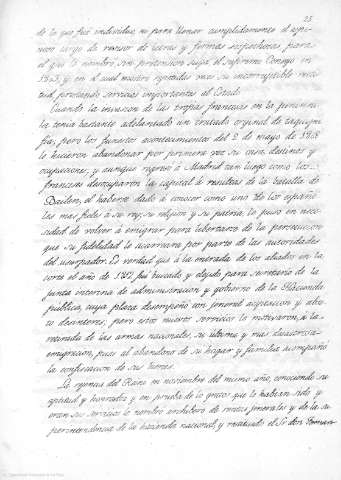 25
de lo que fué individuo, ni para llenar cumplidamente el espi-
noso cargo de revisor de letras y firmas sospechosas para
el que le nombró sin pretension suya el supremo Consejo en
1803, y en el cual mostró repetidas veces su incorruptible recti-
tud, prestando servicios importantes al Estado.
Cuando la invasion de las tropas francesas en la peninsu-
la tenia bastante adelantado un tratado original de taquigra-
fia, pero los funestos acontecimientos del 2 de mayo de 1808
le hicieron abandonar por primera vez su casa, destinos y
ocupaciones, y aunque regresó á Madrid tan luego como los
franceses desocuparon la capital á resultas de la batalla de
Bailen, el haberse dado á conocer como uno de los españo-
les mas fieles á su rey, su religion y su patria, le puso en nece-
sidad de volver á emigrar para libertarse de la persecucion
que su fidelidad le acarreara por parte de las autoridades
del usurpador. Es verdad que á la entrada de los aliados en la
corte el año de 1812, fué buscado y elejido para secretario de la
junta interina de administracion y gobierno de la Hacienda
pública, cuya plaza desempeñó con jeneral aceptacion y abso-
luto desinteres; pero estos nuevos servicios le motivaron, á la
retirada de las armas nacionales, su última y mas desastrosa
emigracion, pues al abandono de su hogar y familia acompañó
la confiscacion de sus bienes.
La rejencia del Reino en noviembre del mismo año, conociendo su
aptitud y honradez y en prueba de lo gratos que le habian sido y
eran sus servicios le nombró archivero de rentas jenerales y de la su-
perintendencia de la hacienda nacional, y restituido el Sr. don Fernan-